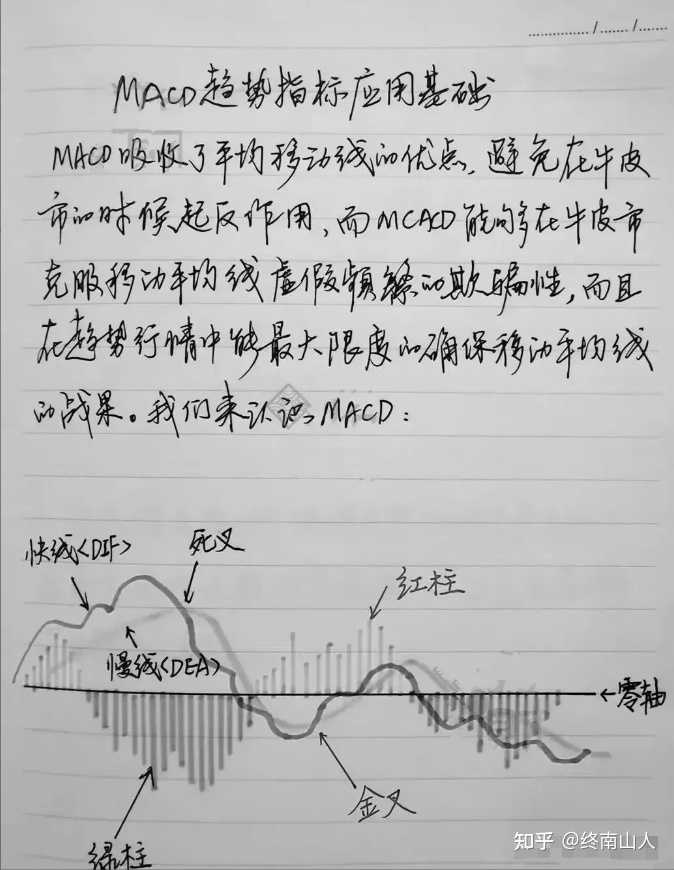 MACD趋势指标应用基础
MACD吸收了平均移动线的优点,避免在牛皮
市的时候起反作用,而MCACD能够在牛皮市
克服移动平均线虚假频繁的欺骗性,而且
在趋势行情中能最大限度的确保移动平均线
的战果。我们来认识MACD:
快线<DIF>
死叉
红柱
慢线<DEA>
←零轴
金叉
绿柱
知乎 @终南山人